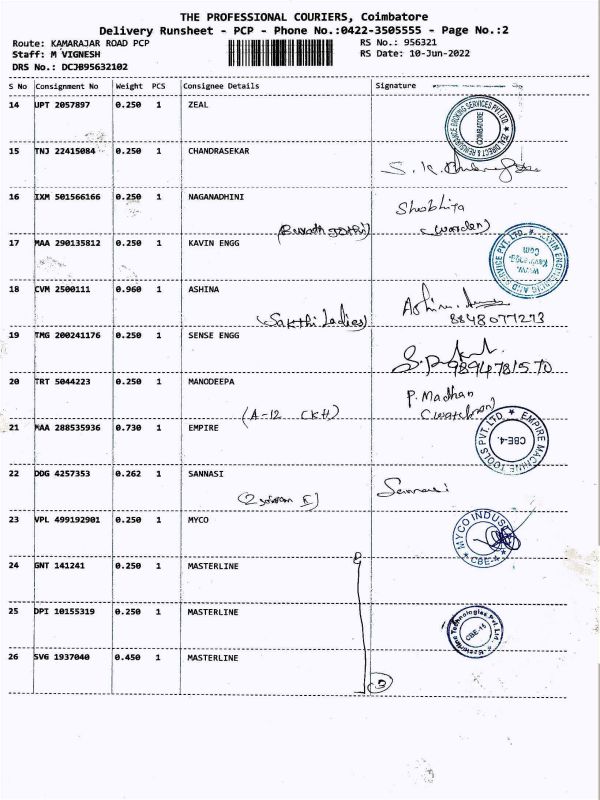 THE PROFESSIONAL COURIERS, Coimbatore
Delivery Runsheet - PCP - Phone No.:0422-3505555 - Page No.:2
Route: KAMARAJAR ROAD PCP RS No.: 956321
Staff: M VIGNESH RS Date: 10-Jun-2022
DRS No.: DCJB95632102
S No Consignment No Weight PCS Consignee Details Signature
14 UPT 2057897 0.250 1 ZEAL
COIMBATORE
15 TNJ 22415084 0.250 1 CHANDRASEKAR
16 IXM 501566166 0.250 1 NAGANADHINI
(warden)
17 MAA 290135812 0.250 1 KAVIN ENGG
18 CVM 2500111 0.960 1 ASHINA
(Sakthi Ladies) 8848077273
19 TMG 200241176 0.250 1 SENSE ENGG
9894781570
20 TRT 5044223 0.250 1 MANODEEPA P. Madhan
(A-12 CKH) (watchman)
21 MAA 288535936 0.730 1 EMPIRE
EMPIRE MACHINE TOOLS PVT. LTD
CBE-4.
22 DDG 4257353 0.262 1 SANNASI Sannasi
23 VPL 499192901 0.250 1 MYCO
MYCO INDUS
CBE-4
24 GNT 141241 0.250 1 MASTERLINE
25 DPI 10155319 0.250 1 MASTERLINE
CBE-15
26 SVG 1937040 0.450 1 MASTERLINE
3